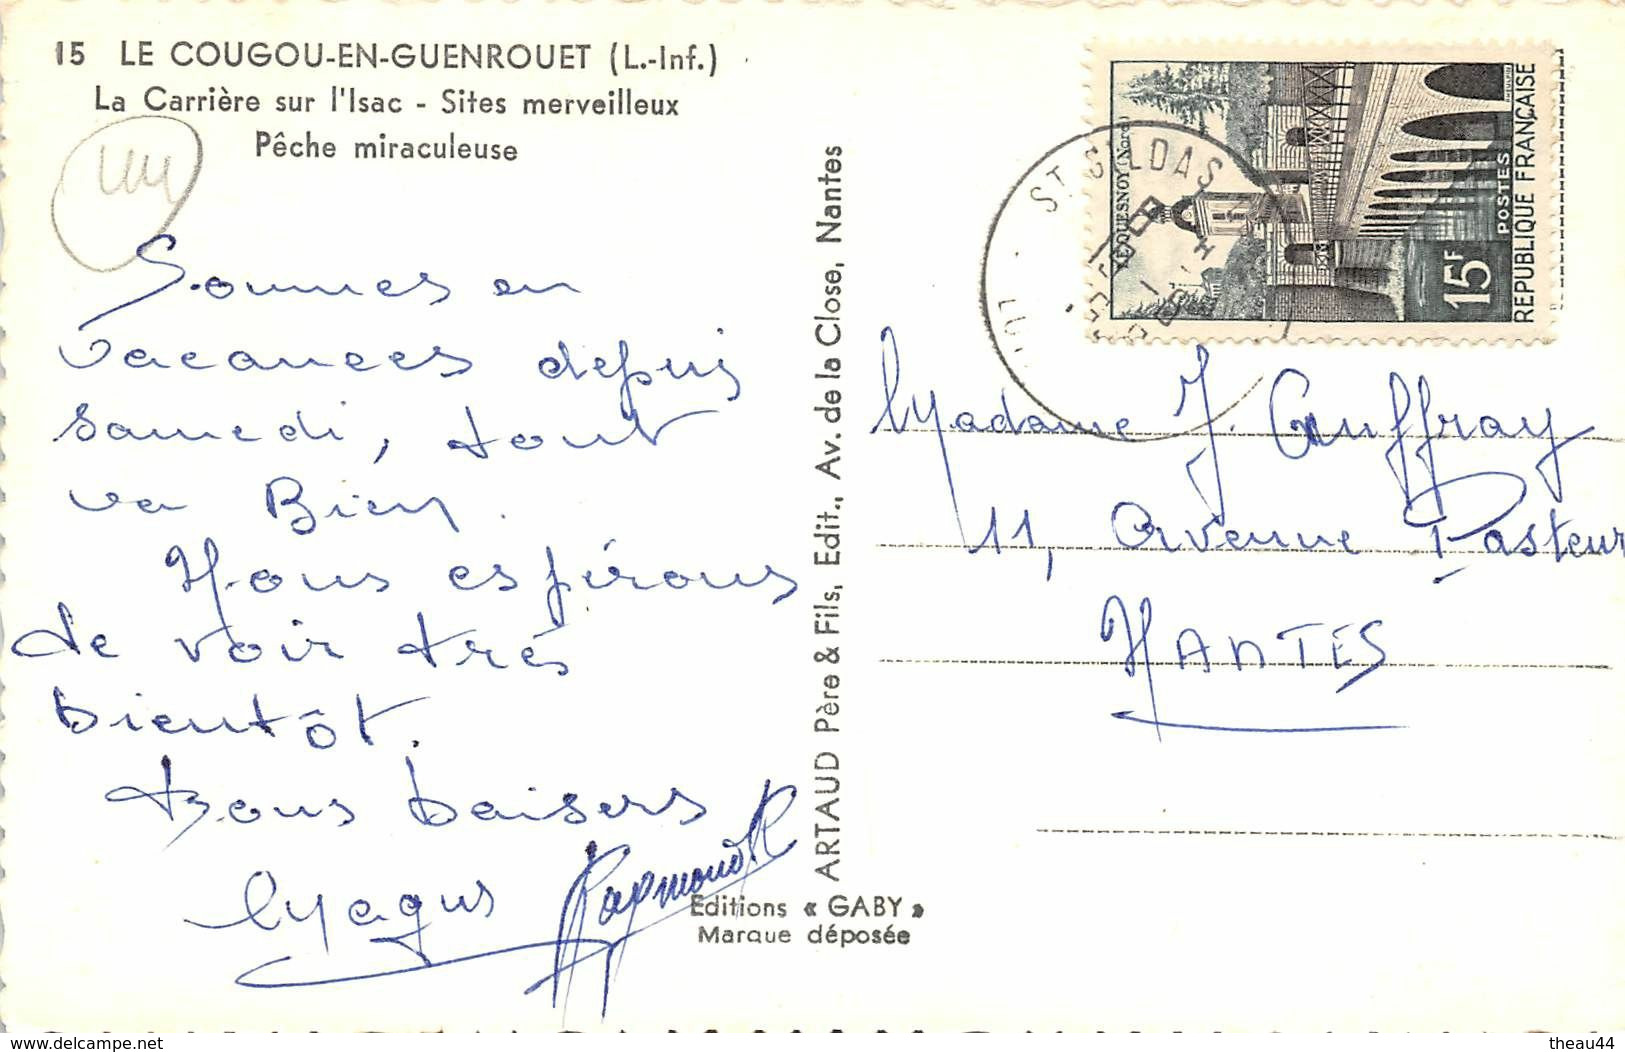 15 LE COUGOU-EN-GUENROUET (L.-Inf.)
La Carrière sur l'Isac - Sites merveilleux
Pêche miraculeuse
Sommes en
vacances depuis
samedi, tout
va Bien.
Nous espérons
de voir très
bientôt.
Bons baisers
Magus Raymond
ARTAUD Père & Fils, Edit., Av. de la Close, Nantes
Editions « GABY »
Marque déposée
ST GILDAS
LE QUESNOY (Nord)
15F
POSTES
REPUBLIQUE FRANÇAISE
Madame J. Gauffray
11, Avenue Pasteur
NANTES
www.delcampe.net
theau44